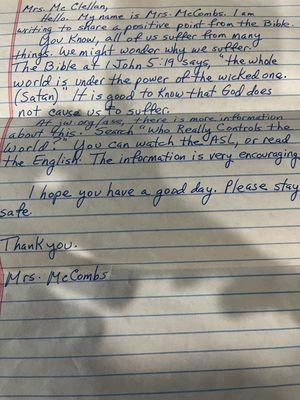 Mrs. Mc Clellan,
Hello. My name is Mrs. McCombs. I am
writing to share a positive point from the Bible.
You know, all of us suffer from many
things. We might wonder why we suffer.
The Bible at 1 John 5:19 says, "the whole
world is under the power of the wicked one.
(Satan)" It is good to know that God does
not cause us to suffer.
At jw.org/ase, there is more information
about this. Search "Who Really Controls the
World?" You can watch the ASL, or read
the English. The information is very encouraging.
I hope you have a good day. Please stay
safe.
Thank you.
Mrs. McCombs